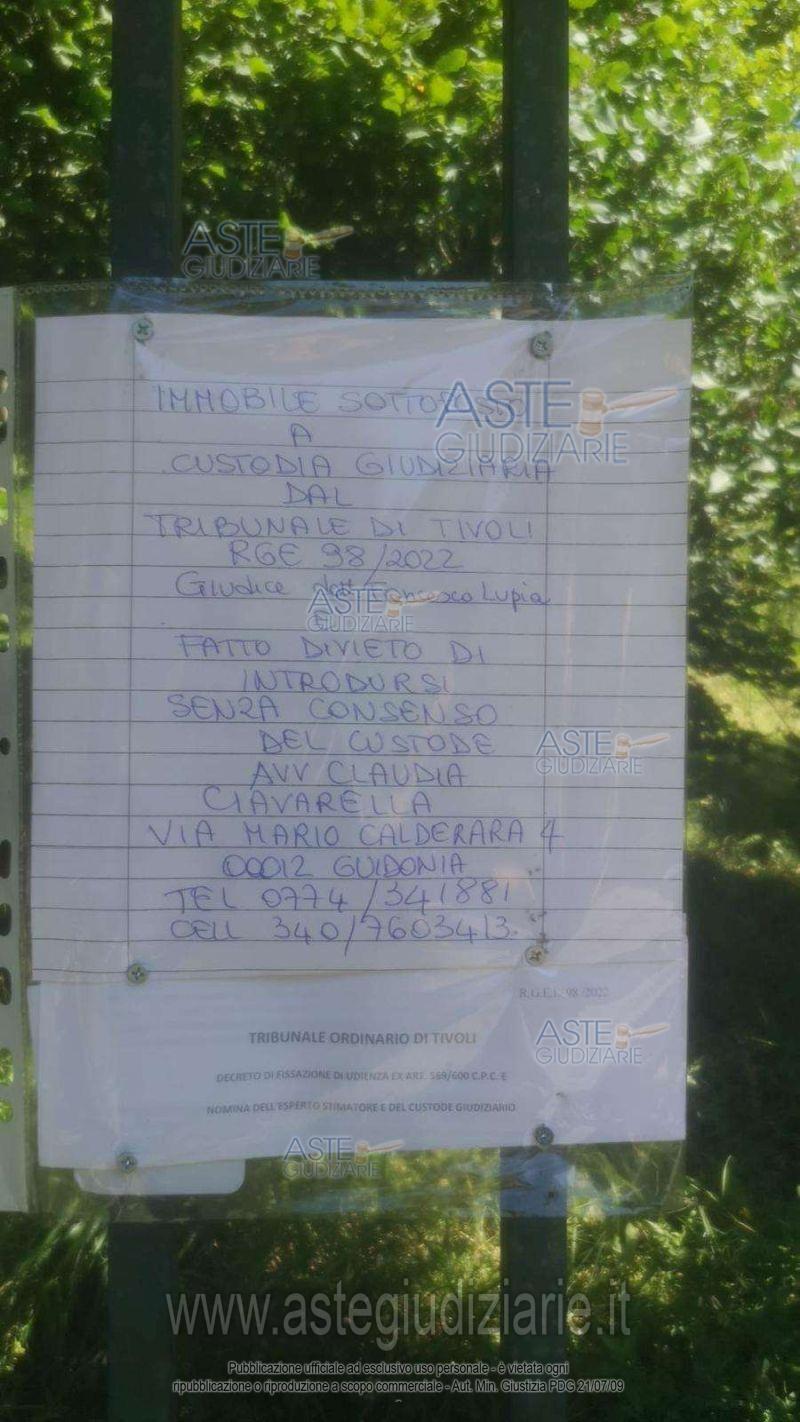 ASTE
GIUDIZIARIE
IMMOBILE SOTTOPOSTO
ASTE
GIUDIZIARIE
A
CUSTODIA GIUDIZIARIA
DAL
TRIBUNALE DI TIVOLI
RGE 98/2022
Giudice dott Francesco Lupia
ASTE
GIUDIZIARIE
È
FATTO DIVIETO DI
INTRODURSI
SENZA CONSENSO
DEL CUSTODE
ASTE
GIUDIZIARIE
AVV CLAUDIA
CIAVARELLA
VIA MARIO CALDERARA 4
00012 GUIDONIA
TEL 0774/341881
CELL 340/7603413
R.G.E.I. 98/2022
TRIBUNALE ORDINARIO DI TIVOLI
ASTE
GIUDIZIARIE
DECRETO DI FISSAZIONE DI UDIENZA EX ART. 569/600 C.P.C. E
NOMINA DELL'ESPERTO STIMATORE E DEL CUSTODE GIUDIZIARIO
ASTE
GIUDIZIARIE
www.astegiudiziarie.it
Pubblicazione ufficiale ad esclusivo uso personale - è vietata ogni
ripubblicazione o riproduzione a scopo commerciale - Aut. Min. Giustizia PDG 21/07/09